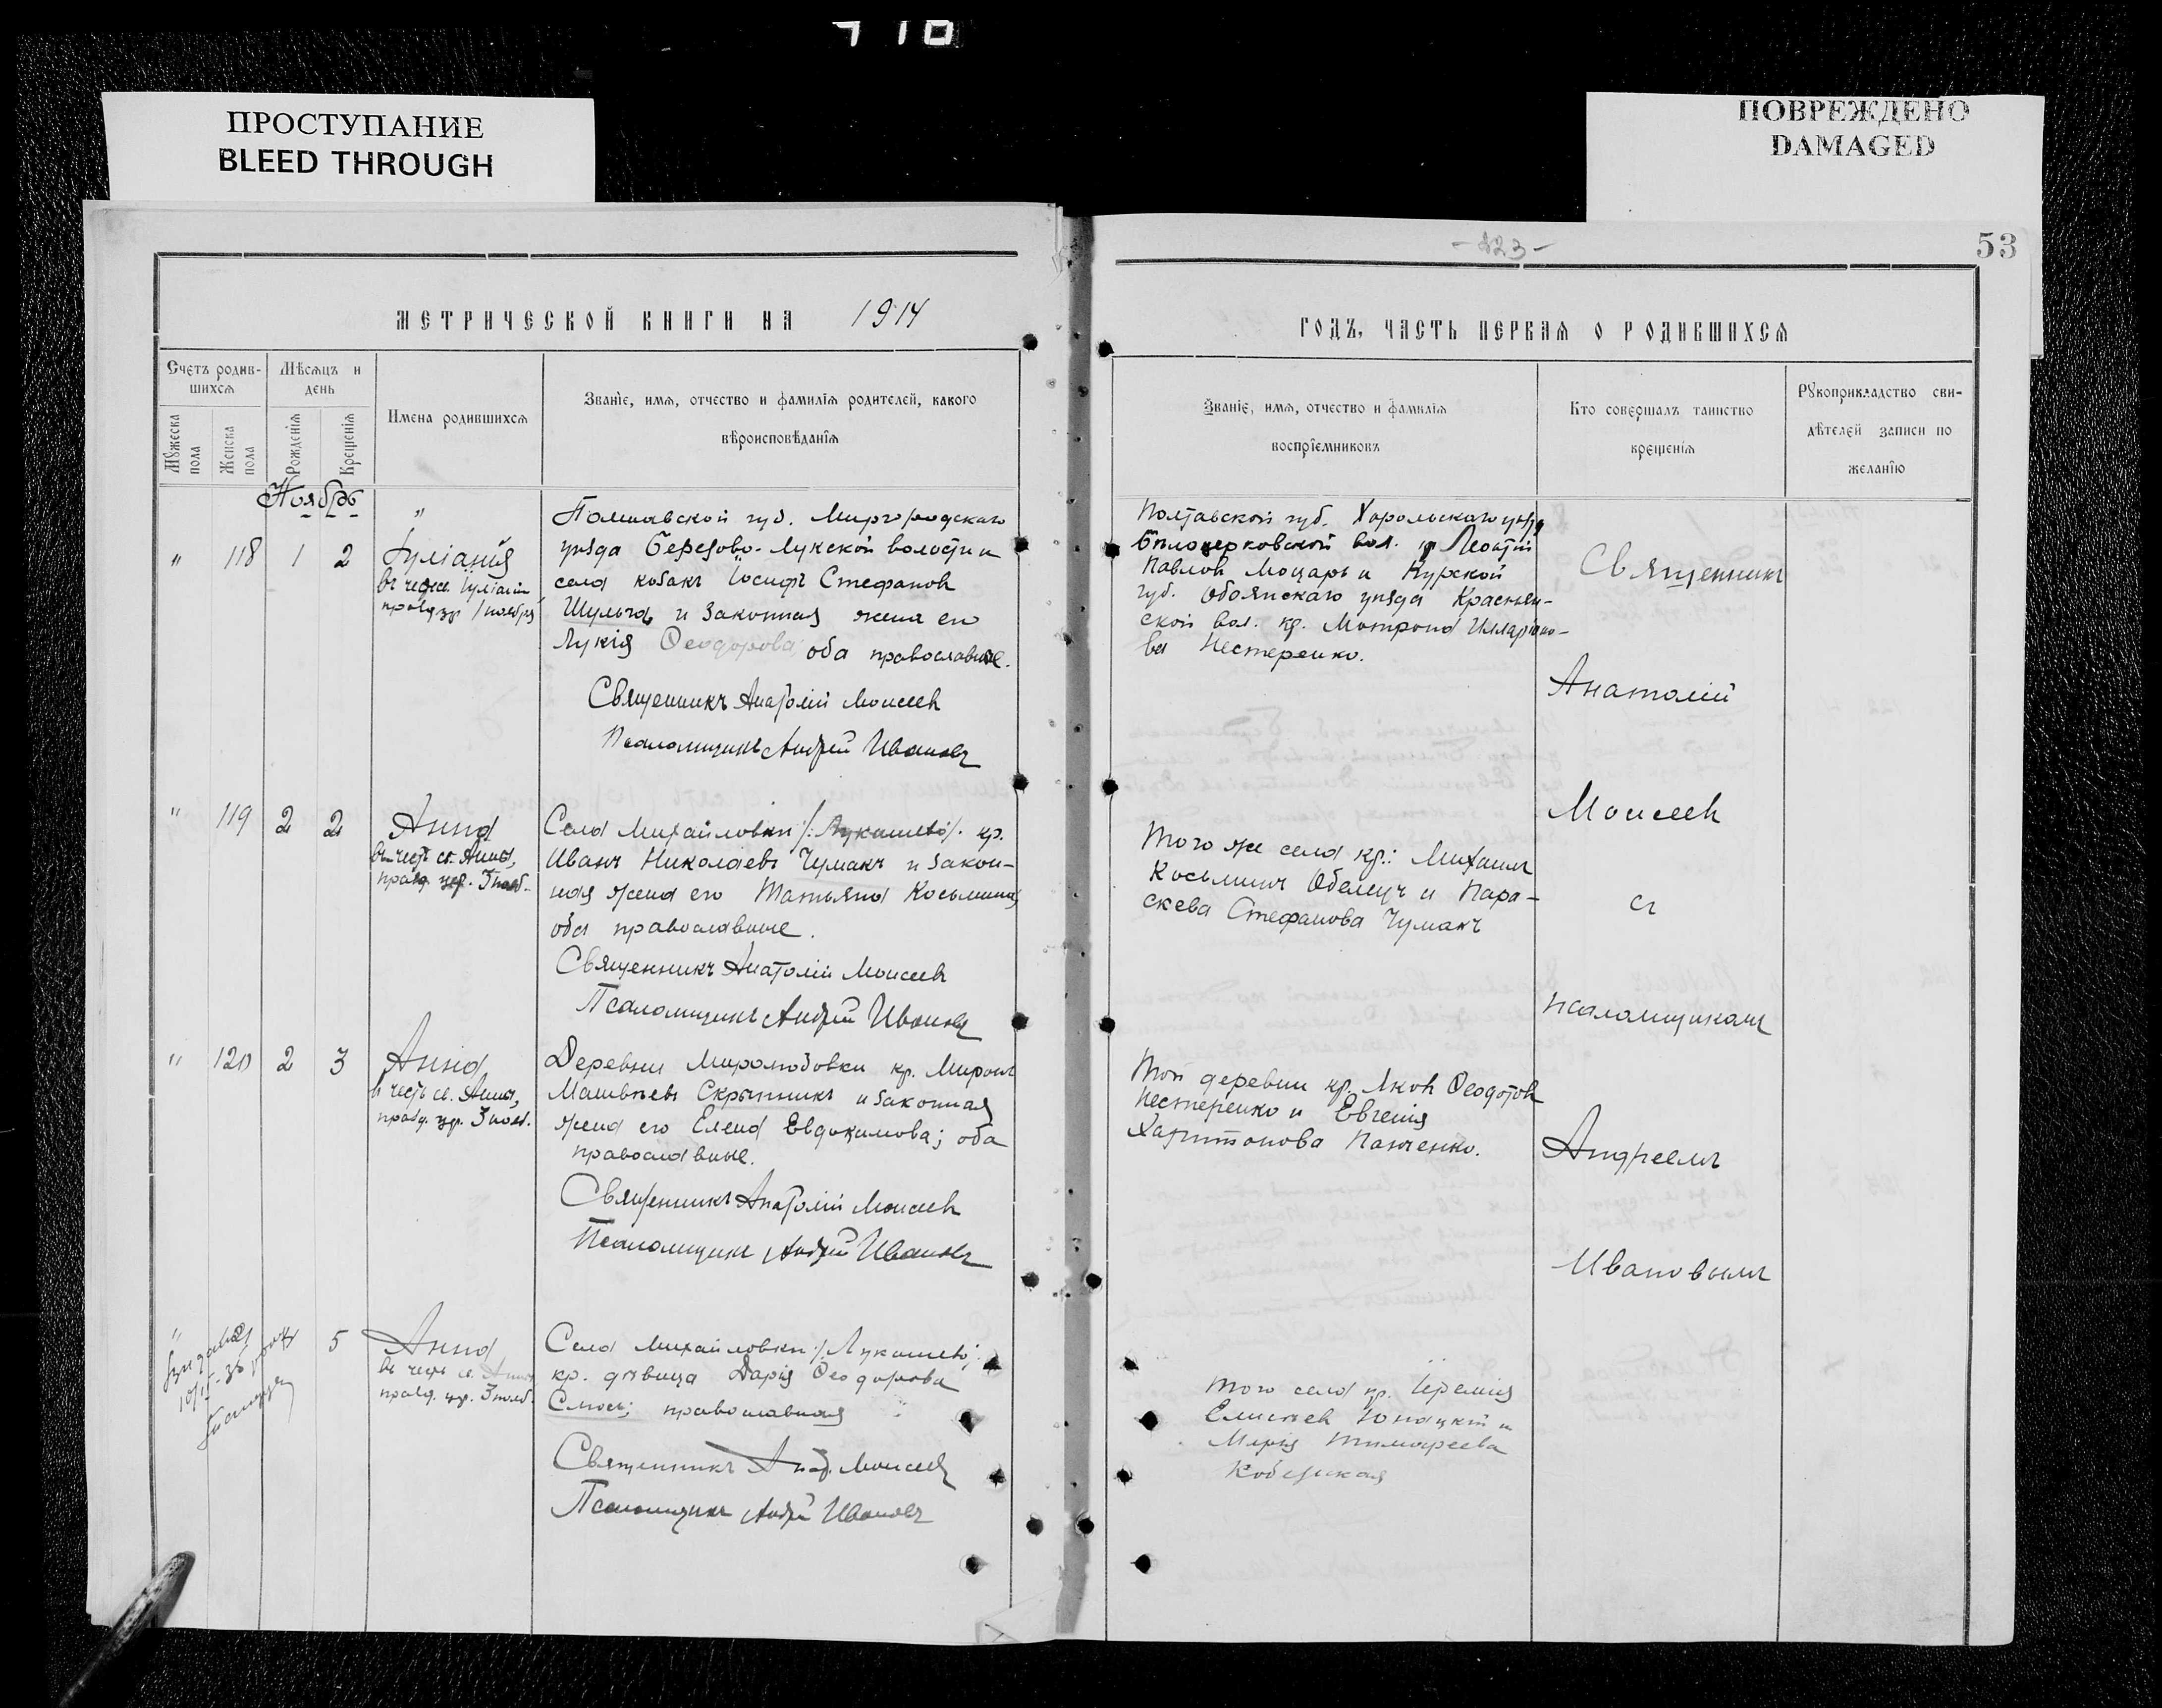 ПРОСТУПАНИЕ
BLEED THROUGH
ПОВРЕЖДЕНО
DAMAGED
МЕТРИЧЕСКОЙ КНИГИ НА 1914
Счетъ родив-
шихся
Мужеска пола
Женска пола
Мѣсяцъ и
день
Рожденія
Крещенія
Имена родившихся
Званіе, имя, отчество и фамилія родителей, какого
вѣроисповѣданія
Ноябрь
" 118 1 2
Іуліанія
въ честь Іуліаніи
празд. 1 ноября
Полтавской губ. Миргородскаго
уѣзда Березово-Лукской волости и
села кобакъ Іосифъ Стефановъ
Шульга и законная жена его
Лукія Ѳеодорова оба православные.
Священникъ Анатолій Моисеевъ
Псаломщикъ Андрей Ивановъ
" 119 2 2
Анна
въ честь св. Анны,
празд. цер. 3 нояб.
Села Михайловки /:Лукашево/. кр.
Иванъ Николаевъ Чумакъ и закон-
ная жена его Татьяна Косьмина,
оба православные.
Священникъ Анатолій Моисеевъ
Псаломщикъ Андрей Ивановъ
" 120 2 3
Анна
въ честь св. Анны,
празд. цр. 3 нояб.
Деревни Миролюбовки кр. Миронъ
Матвѣевъ Скрыпникъ и законная
жена его Елена Евдокимова; оба
православные.
Священникъ Анатолій Моисеевъ
Псаломщикъ Андрей Ивановъ
" 5
Анна
въ честь св. Анны
празд. цр. 3 нояб.
Села Михайловки /:Лукашево:
кр. дѣвица Дарія Ѳеодорова
православная
Священникъ Анат. Моисеевъ
Псаломщикъ Андрей Ивановъ
-423-
53
ГОДЪ, ЧАСТЬ ПЕРВАЯ О РОДИВШИХСЯ
Званіе, имя, отчество и фамилія
воспріемниковъ
Кто совершалъ таинство
крещенія
Рукоприкладство сви-
дѣтелей записи по
желанію
Полтавской губ. Хорольскаго уѣзда
Бѣлоцерковской вол. Леонтій
Павловъ Моцарь и Курской
губ. Обоянскаго уѣзда Краснян-
ской вол. кр. Матрона Илларіоно-
ва Нестеренко.
Того же села кр.: Михаилъ
Косьминъ Обелецъ и Пара-
скева Стефанова Чумакъ
Той деревни кр. Яковъ Ѳеодотовъ
Нестеренко и Евгенія
Харитонова Панченко.
Того села кр. Іеремія
Елисеевъ и
Марія Тимофеева
Священникъ
Анатолій
Моисеевъ
съ
псаломщикомъ
Андреемъ
Ивановымъ